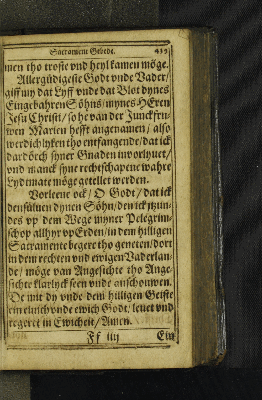 Sacrament Gebede. 419
men tho troste vnd heyl kamen möge.
Allergüdigeste Godt vnde Vader/
giff my dat Lyff vnde dat Blot dynes
Eingebahren Söhns/mynes HEren
Jesu Christi/ so he van der Junckfru-
wen Marien hefft angenamen/ also
werdichlyken tho entfangende/dat ick
dardörch syner Gnaden invorlyuet/
vnd manck syne rechtschapene wahre
Lydtmate möge getellet werden.
Vorleene ock/ O Godt/ dat ick
densüluen dynen Söhn/den ick nzun-
des vp dem Wege myner Pelegrim-
schop allhyr vp Erden/ in dem hilligen
Sacramente begere tho geneten/dort
in dem rechten vnd ewigen Vaderlan-
de/ möge van Angesichte tho Ange-
sichte klarlyck seen vnde anschouwen.
De mit dy vnde dem hilligen Geiste
ein einich vnde ewich Godt/ leuet vnd
regeret in Ewicheit/ Amen.
Ff iiij Ein